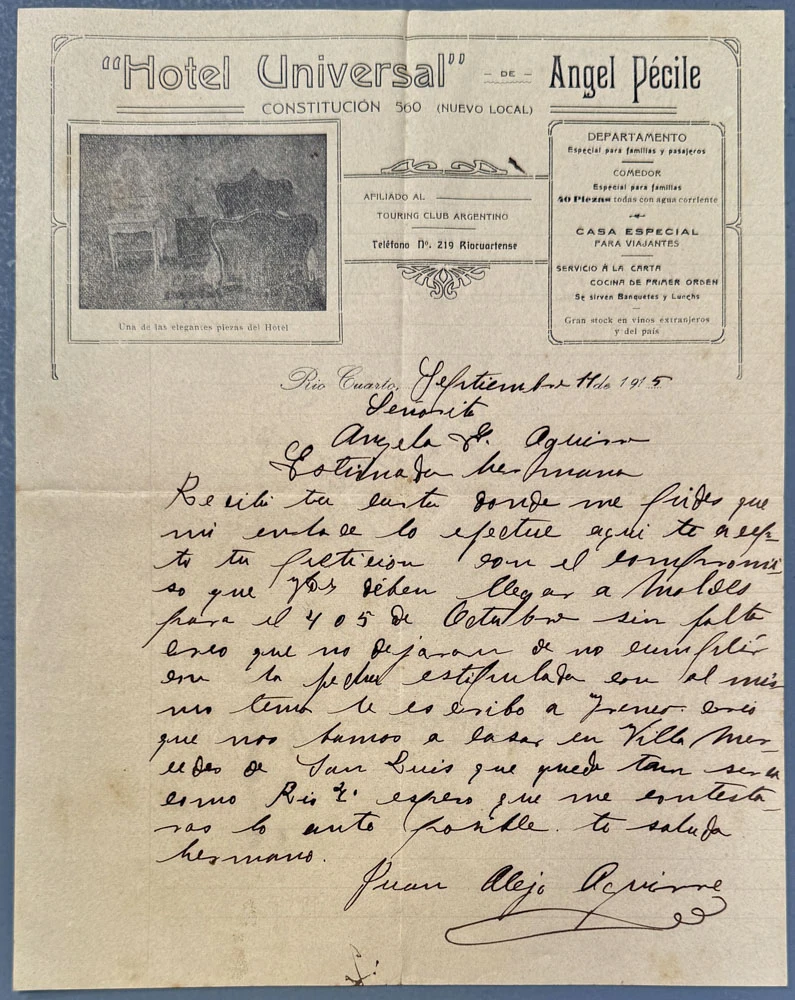 "Hotel Universal" DE Angel Pécile
CONSTITUCIÓN 560 (NUEVO LOCAL)
Una de las elegantes piezas del Hotel
AFILIADO AL
TOURING CLUB ARGENTINO
Teléfono Nº. 219 Riocuartense
DEPARTAMENTO
Especial para familias y pasajeros
COMEDOR
Especial para familias
40 Piezas todas con agua corriente
CASA ESPECIAL
PARA VIAJANTES
SERVICIO Á LA CARTA
COCINA DE PRIMER ORDEN
Se sirven Banquetes y Lunchs
Gran stock en vinos extranjeros
y del país
Rio Cuarto, Septiembre 11 de 1915
Señorita
Angela F. Aguirre
Estimada hermana
Recibi tu carta donde me pides que
mi enlace lo efectue aqui te acep-
to tu peticion con el compromi-
so que deben llegar a Moldes
para el 4 o 5 de Octubre sin falta
creo que no dejaran de no cumplir
con la fecha estipulada con al mis-
mo tema le escribo a Ireneo creo
que nos bamos a casar en Villa Mer-
cedes de San Luis que queda tan serca
como Rio 4º espero que me contesta-
ras lo anto posible. te saluda
hermano.
Juan Alejo Aguirre